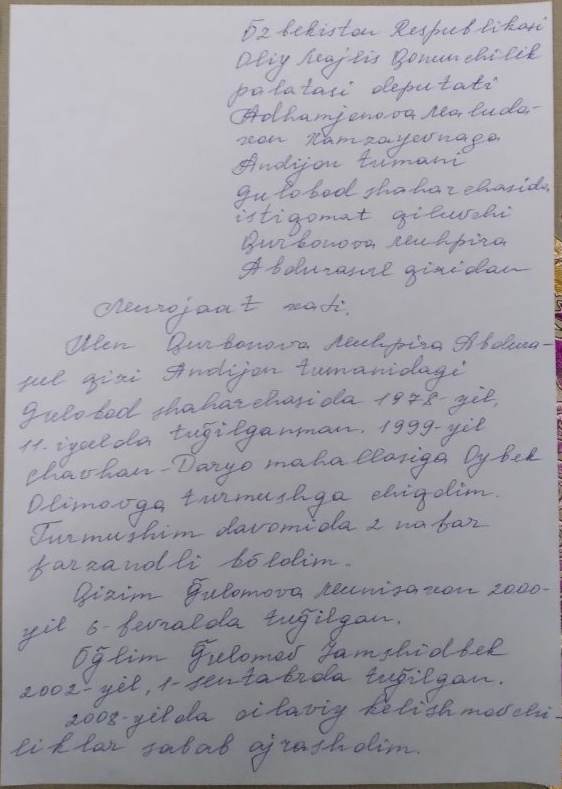 Õzbekiston Respublikasi
Oliy Majlis Qonunchilik
palatasi deputati
Adhamjonova Maluda-
xon Xamzayevnaga
Andijon tumani
Gulobod shaharchasida
istiqomat qiluvchi
Qurbonova Muhpira
Abdurasul qizidan
Murojaat xati.
Men Qurbonova Muhpira Abdura-
sul qizi Andijon tumanidagi
Gulobod shaharchasida 1978-yil,
11-iyulda tuğilganman. 1999-yil
Chavhan-Daryo mahallasiga Oybek
Olimovga turmushga chiqdim.
Turmushim davomida 2 nafar
farzandli bõldim.
Qizim Ğulomova Munisaxon 2000-
yil 6-fevralda tuğilgan.
Õğlim Ğulomov Jamshidbek
2002-yil, 1-sentabrda tuğilgan.
2008-yilda oilaviy kelishmovchi-
liklar sabab ajrashdim.